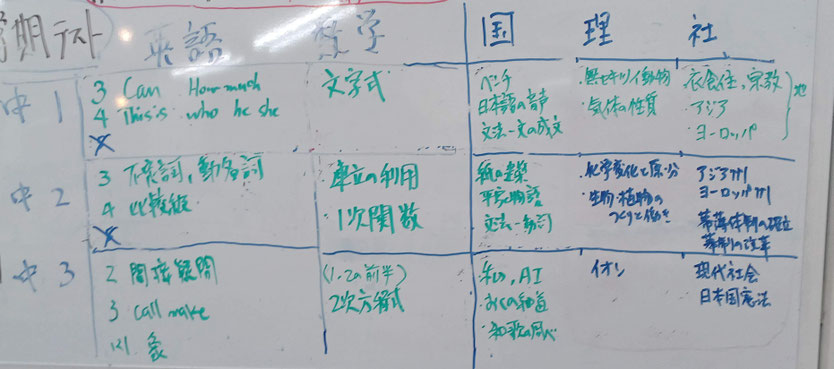 期テスト 英語 数学 国 理 社
中1
3 Can How much
4 This is who he she
文字式
ベンチ
日本語の音声
文法一文の成文
・無セキツイ動物
・気体の性質
衣食住, 宗教
・アジア
・ヨーロッパ
地
中2
3 不定詞, 動名詞
4 比較級
連立の利用
1次関数
紙の建築
平家物語
文法一動詞
化学変化と原・分
生物・植物の
つくりと働き
アジア州
ヨーロッパ州
幕藩体制の確立
幕制の改革
中3
2 間接疑問
3 call make
(1,2の前半)
2次方程式
私, AI
おくの細道
・和歌の調べ
イオン
現代社会
日本国憲法